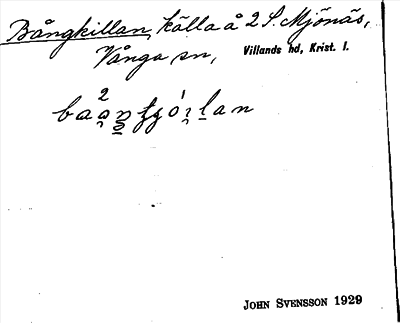 Bångkillan, källa å 2 S. Mjönäs,
Vånga sn, Villands hd, Krist. l.
JOHN SVENSSON 1929